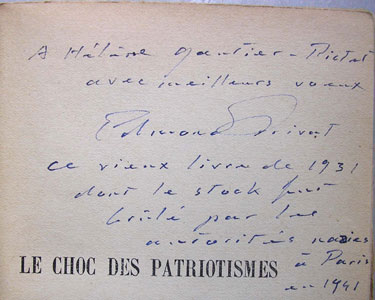 A Hélène Gautier-Pictet
avec meilleurs vœux
Edmond Privat
ce vieux livre de 1931
dont le stock fut
brûlé par les
autorités nazies
LE CHOC DES PATRIOTISMES
à Paris
en 1941